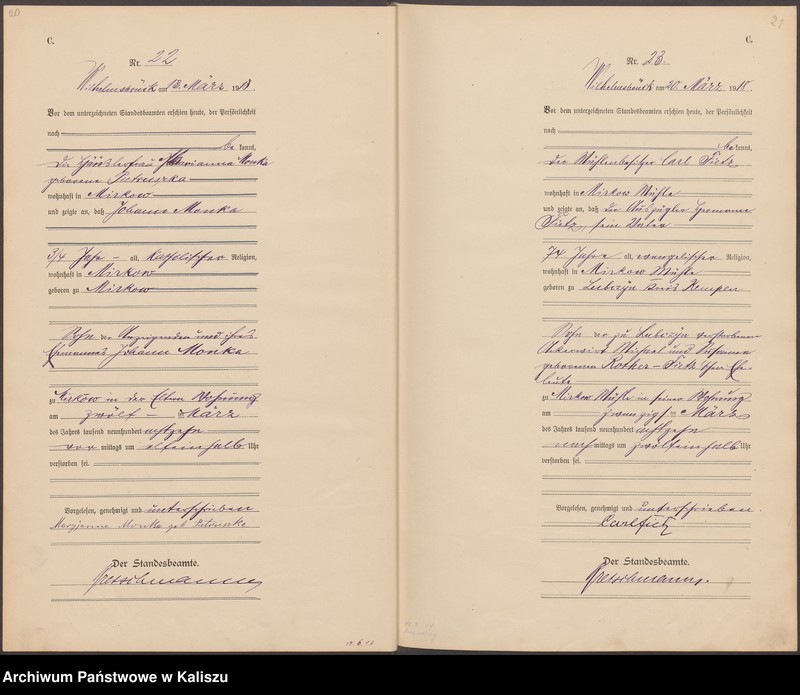 20
C.
Nr. 22
Wilhelmsbrück am 13. März 1918
Vor dem unterzeichneten Standesbeamten erschien heute, der Persönlichkeit
nach
be kannt,
die Häuslerfrau Marianna Monka
geborene Pietruszka
wohnhaft in Mirkow
und zeigte an, daß Johann Monka
3/4 Jahr – alt, katholischer Religion,
wohnhaft in Mirkow
geboren zu Mirkow
Sohn der Anzeigenden und ihres
Ehemannes Johann Monka
zu Mirkow in der Eltern Wohnung
am zwölf – März
des Jahres tausend neunhundert achtzehn
vor mittags um elfeinhalb Uhr
verstorben sei.
Vorgelesen, genehmigt und unterschrieben
Maryjanna Monka geb Pietruszka
Der Standesbeamte.
19.6.12
21
C.
Nr. 23.
Wilhelmsbrück am 20. März 1918.
Vor dem unterzeichneten Standesbeamten erschien heute, der Persönlichkeit
nach
be kannt,
der Mühlenbesitzer Carl Fietz
wohnhaft in Mirkow Mühle
und zeigte an, daß der Auszügler Hermann
Fietz, sein Vater
74 Jahre alt, evangelischer Religion,
wohnhaft in Mirkow Mühle
geboren zu Lubczyn Kreis Kempen
Sohn der zu Lubczyn verstorbenen
Ackerwirt Michael und Susanna
geborenen Rother – Fietz'schen Ehe-
leute
zu Mirkow Mühle in seiner Wohnung
am zwanzigsten März
des Jahres tausend neunhundert achtzehn
nach mittags um zwölfeinhalb Uhr
verstorben sei.
Vorgelesen, genehmigt und unterschrieben.
Carl Fietz
Der Standesbeamte.
Archiwum Państwowe w Kaliszu